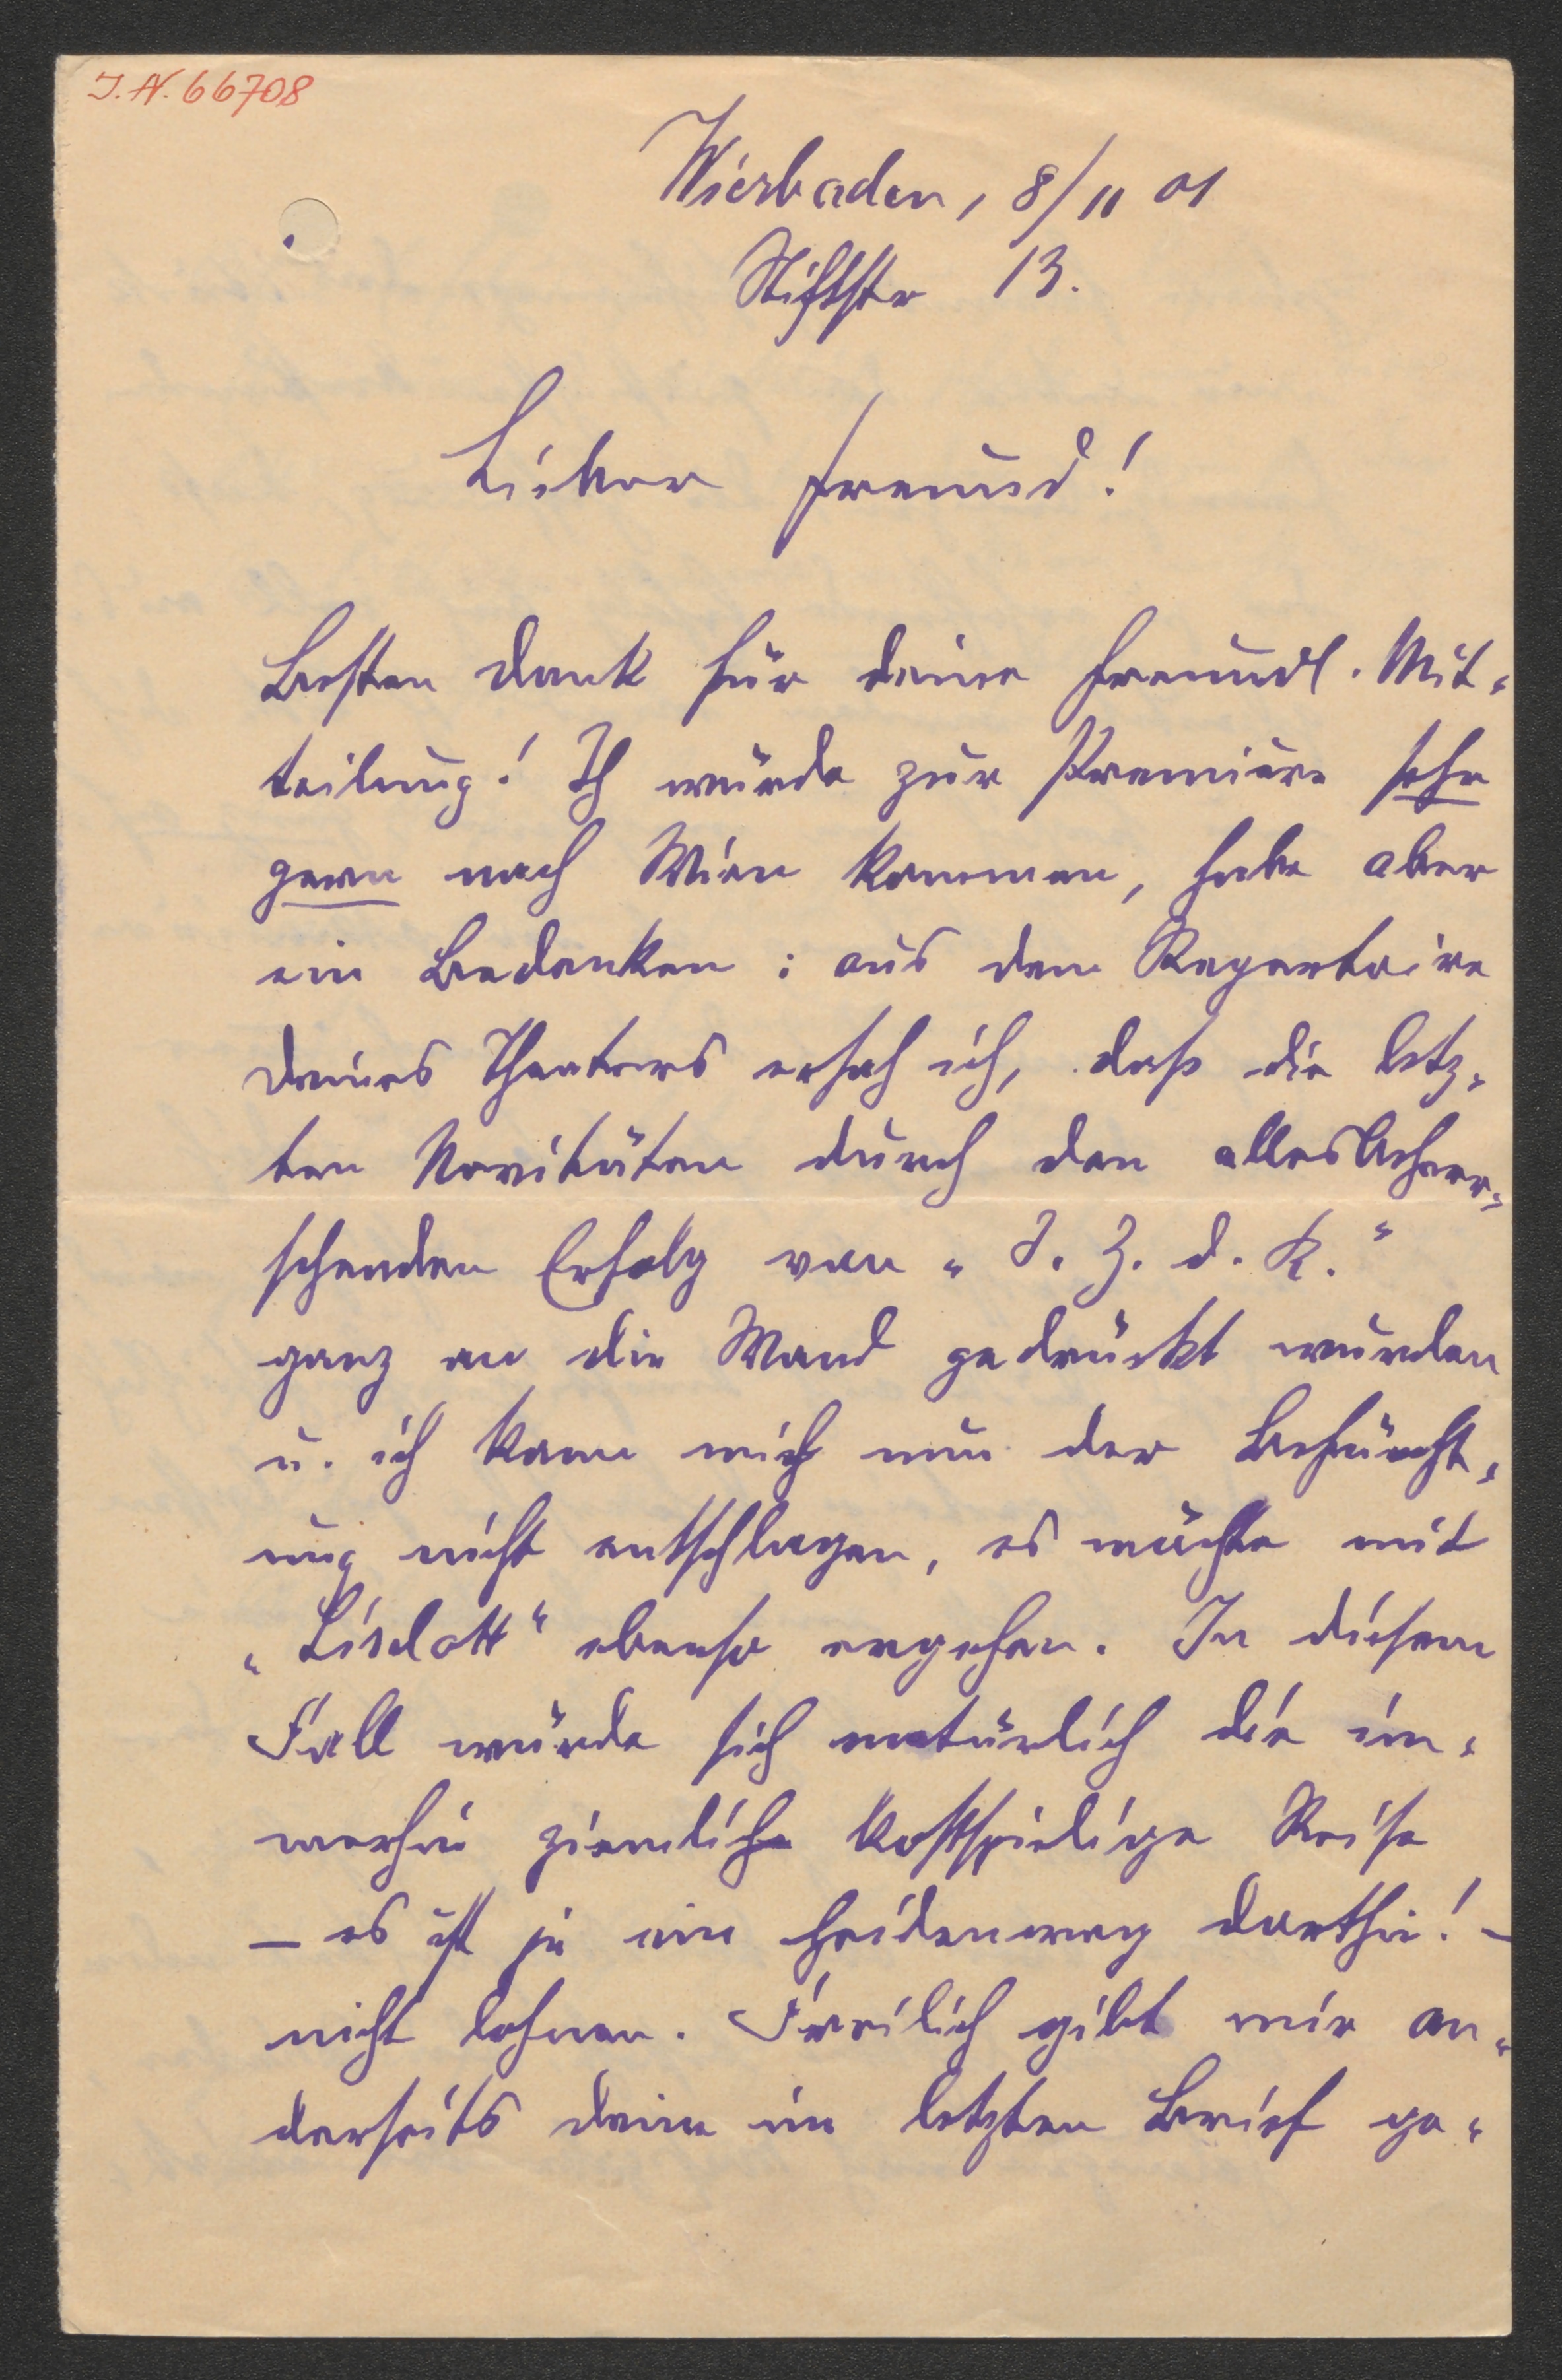 I. N. 66708
Wiesbaden, 8/11 01
Stiftstr 13.
Lieber Freund!
Besten Dank für deine freundl. Mit-
teilung! Ich würde zur Première sehr
gern nach Wien kommen, habe aber
ein Bedenken: aus dem Repertoire
deines Theaters ersah ich, daß die letz-
ten Novitäten durch den alles beherr-
schenden Erfolg von „I. Z. d. K."
ganz an die Wand gedrückt wurden
u. ich kann mich nun der Befürcht-
ung nicht entschlagen, es möchte mit
„Liselott" ebenso ergehen. In diesem
Fall würde sich natürlich die im-
merhin ziemlich kostspielige Reise
– es ist ja ein Heidenweg dorthin! –
nicht lohnen. Freilich gibt mir an-
derseits deine im letzten Brief ge-